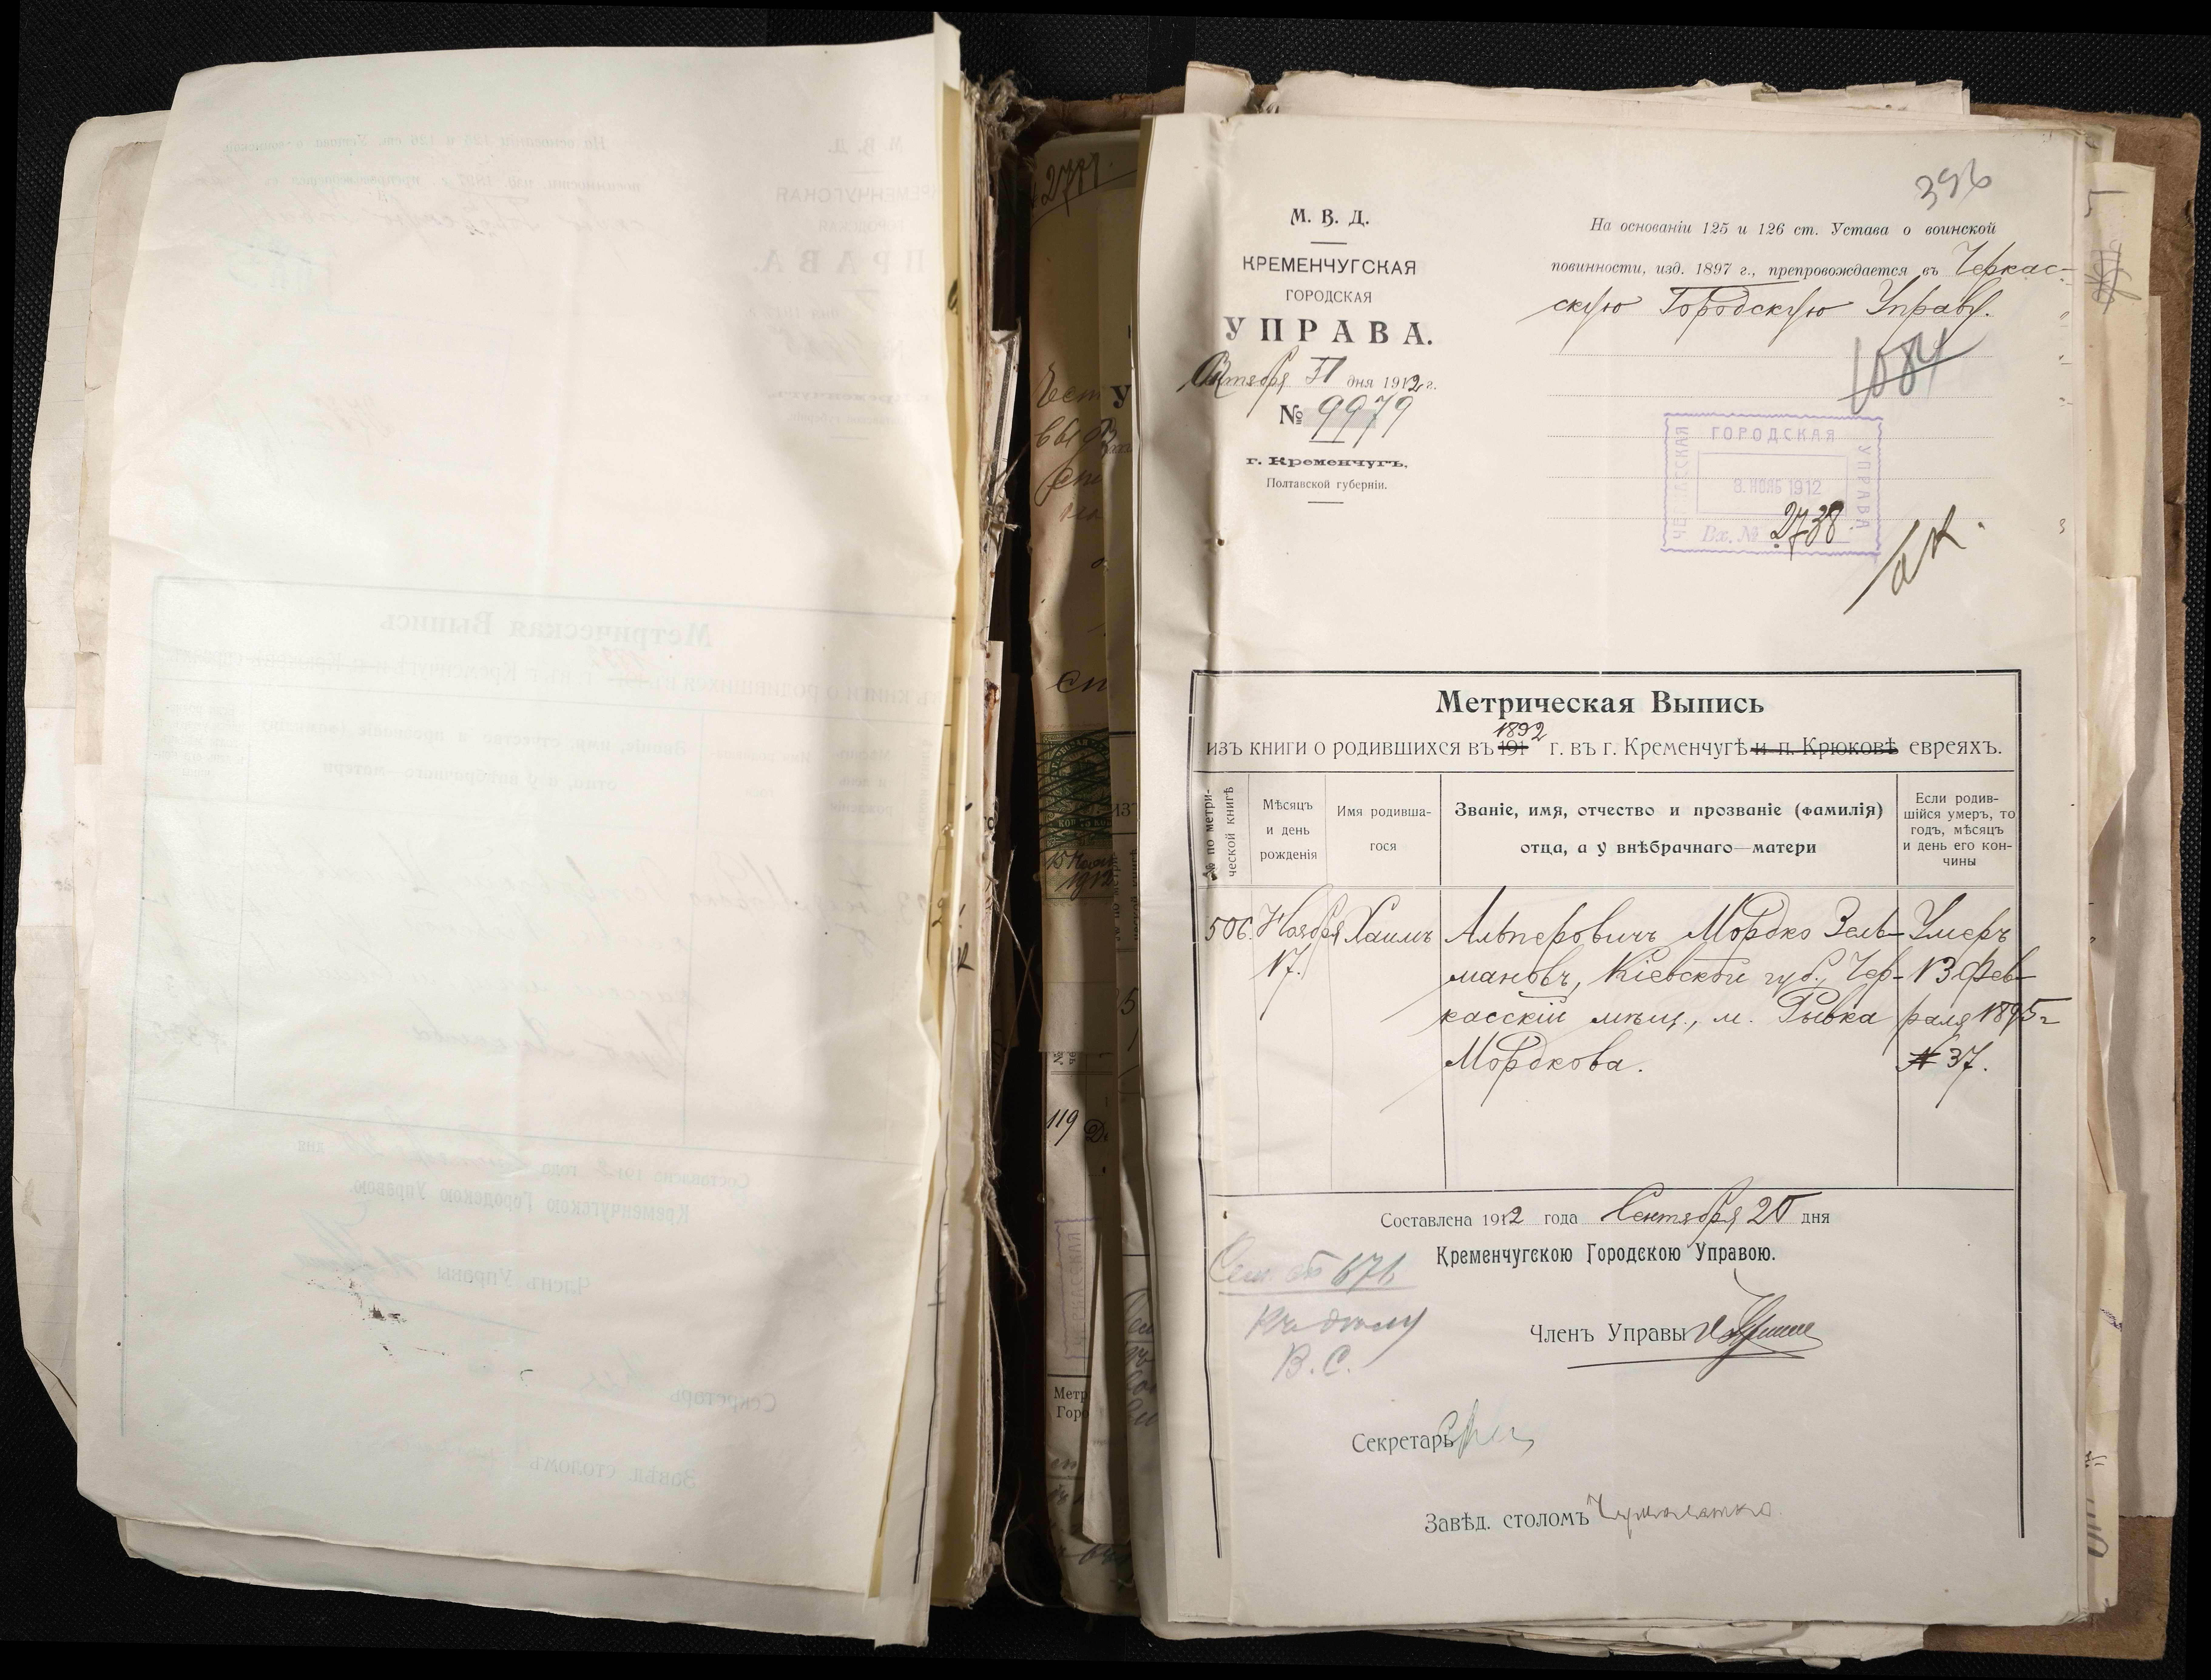 396
М. В. Д.
КРЕМЕНЧУГСКАЯ
ГОРОДСКАЯ
УПРАВА.
Октября 31 дня 1912 г.
№ 9979
г. Кременчугъ,
Полтавской губерніи.
На основаніи 125 и 126 ст. Устава о воинской
повинности, изд. 1897 г., препровождается въ Черкас-
скую Городскую Управу.
1084
ЧЕРКАССКАЯ ГОРОДСКАЯ УПРАВА
8. НОЯБ 1912
Вх. № 2738
Метрическая Выпись
1892
изъ книги о родившихся въ 191 г. въ г. Кременчугѣ и п. Крюковѣ евреяхъ.
№ по метри-
ческой книгѣ
Мѣсяцъ
и день
рожденія
Имя родивша-
гося
Званіе, имя, отчество и прозваніе (фамилія)
отца, а у внѣбрачнаго—матери
Если родив-
шійся умеръ, то
годъ, мѣсяцъ
и день его кон-
чины
506. Ноября Хаимъ Альперовичъ Мордко Зель- Умеръ
17. мановъ, Кіевской губ., Чер- 13 Фев-
касскій мѣщ., м. Рывка раля 1895 г
Мордкова. № 37.
Составлена 1912 года Сентября 20 дня
Кременчугскою Городскою Управою.
Членъ Управы
Къ дѣлу
В. С.
Секретарь
Завѣд. столомъ
2771
15 Ноября
1912
119
Метр
Горо